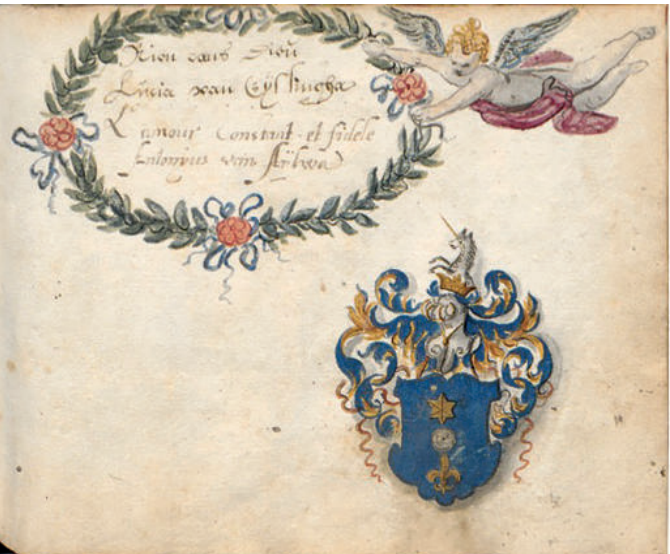 Rien sans Dieu
Lucia van Eysingha
L'amour constant et fidele
Antonius van Aÿlva